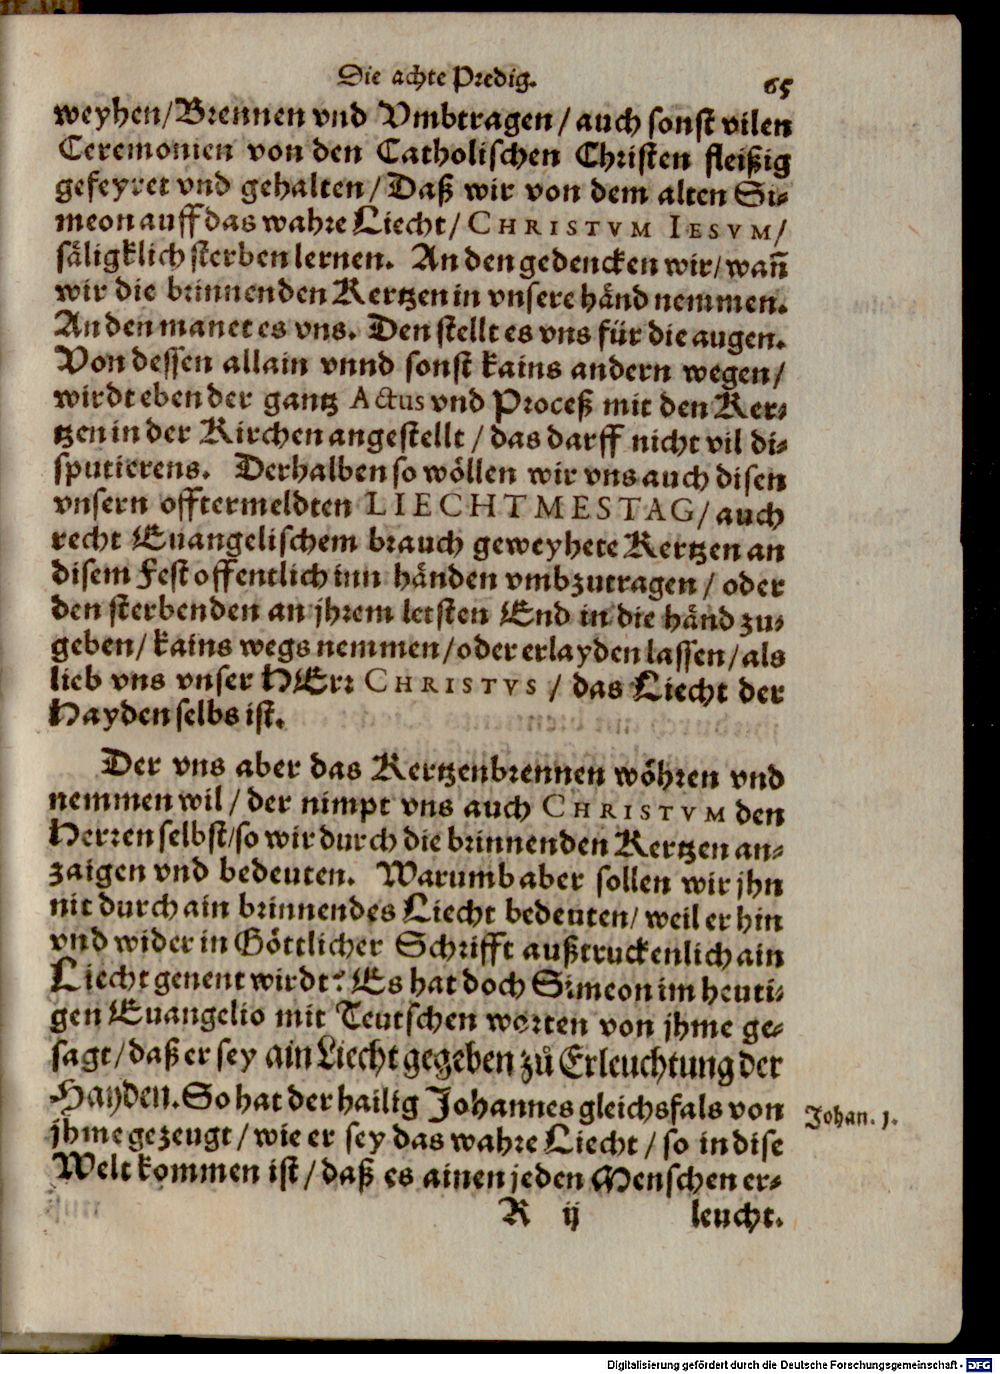 Die achte Predig.
65
weyhen/Brennen vnd Vmbtragen/auch sonst vilen
Ceremonien von den Catholischen Christen fleißig
gefeyret vnd gehalten/Daß wir von dem alten Si-
meon auff das wahre Liecht/CHRISTVM IESVM/
säligklich sterben lernen. An den gedencken wir/wañ
wir die brinnenden Kertzen in vnsere händ nemmen.
An den manet es vns. Den stellt es vns für die augen.
Von dessen allain vnnd sonst kains andern wegen/
wirdt eben der gantz Actus vnd Proceß mit den Ker-
tzen in der Kirchen angestellt/das darff nicht vil di-
sputierens. Derhalben so wöllen wir vns auch disen
vnsern offtermeldten LIECHTMESTAG/auch
recht Euangelischem brauch geweyhete Kertzen an
disem Fest offentlich inn händen vmbzutragen/oder
den sterbenden an jhrem letsten End in die händ zu-
geben/kains wegs nemmen/oder erlayden lassen/als
lieb vns vnser HErr CHRISTVS/das Liecht der
Hayden selbs ist.
Der vns aber das Kertzenbrennen wöhren vnd
nemmen wil/der nimpt vns auch CHRISTVM den
Herren selbst/so wir durch die brinnenden Kertzen an-
zaigen vnd bedeuten. Warumb aber sollen wir jhn
nit durch ain brinnendes Liecht bedeuten/weil er hin
vnd wider in Göttlicher Schrifft außtruckenlich ain
Liecht genent wirdt? Es hat doch Simeon im heuti-
gen Euangelio mit Teutschen worten von jhme ge-
sagt/daß er sey ain Liecht gegeben zů Erleuchtung der
Hayden. So hat der hailig Johannes gleichsfals von
jhme gezeugt/wie er sey das wahre Liecht/so in dise
Welt kommen ist/daß es ainen jeden Menschen er-
Johan. 1.
R ij
leucht.
Digitalisierung gefördert durch die Deutsche Forschungsgemeinschaft - DFG